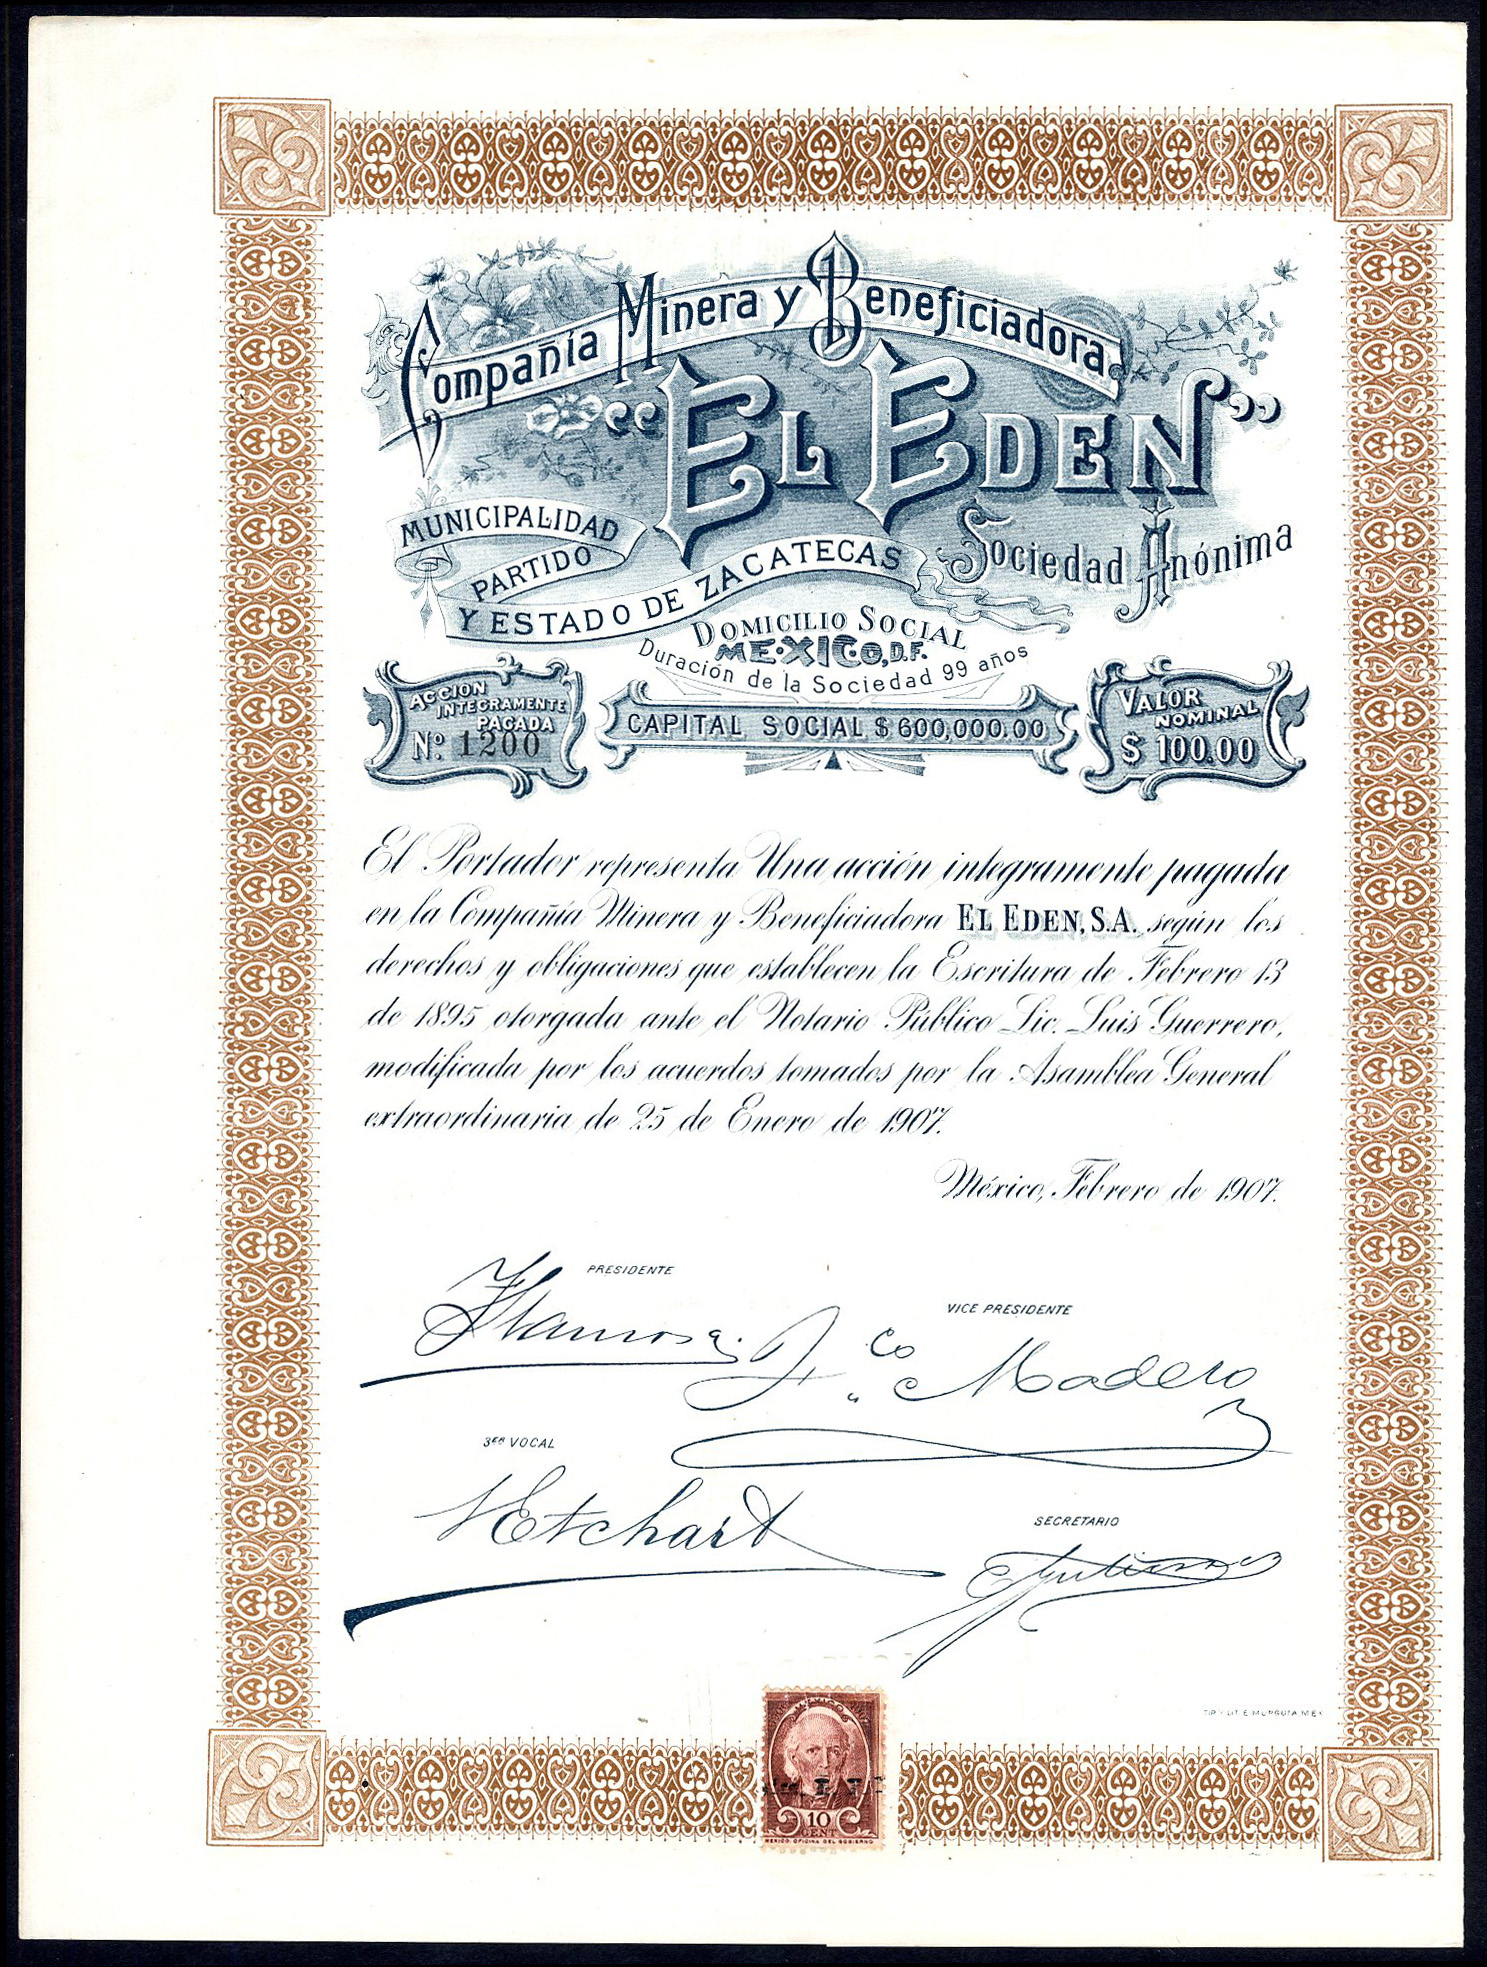 Compañía Minera y Beneficiadora,
“El Eden”
Sociedad Anónima
MUNICIPALIDAD
PARTIDO
Y ESTADO DE ZACATECAS
DOMICILIO SOCIAL
MEXICO, D.F.
Duración de la Sociedad 99 años
ACCION
INTEGRAMENTE
PAGADA
Nº. 1200
CAPITAL SOCIAL $ 600,000.00
VALOR
NOMINAL
$ 100.00
El Portador representa Una acción integramente pagada
en la Compañía Minera y Beneficiadora EL EDEN, S.A. según los
derechos y obligaciones que establecen la Escritura de Febrero 13
de 1895 otorgada ante el Notario Público Lic. Luis Guerrero,
modificada por los acuerdos tomados por la Asamblea General
extraordinaria de 25 de Enero de 1907.
México, Febrero de 1907.
PRESIDENTE
VICE PRESIDENTE
Fco Madero
3ER VOCAL
Etchart
SECRETARIO
TIP. Y LIT. E. MURGUIA. MEX
MEXICO
10
CENT
MEXICO OFICINA DEL GOBIERNO